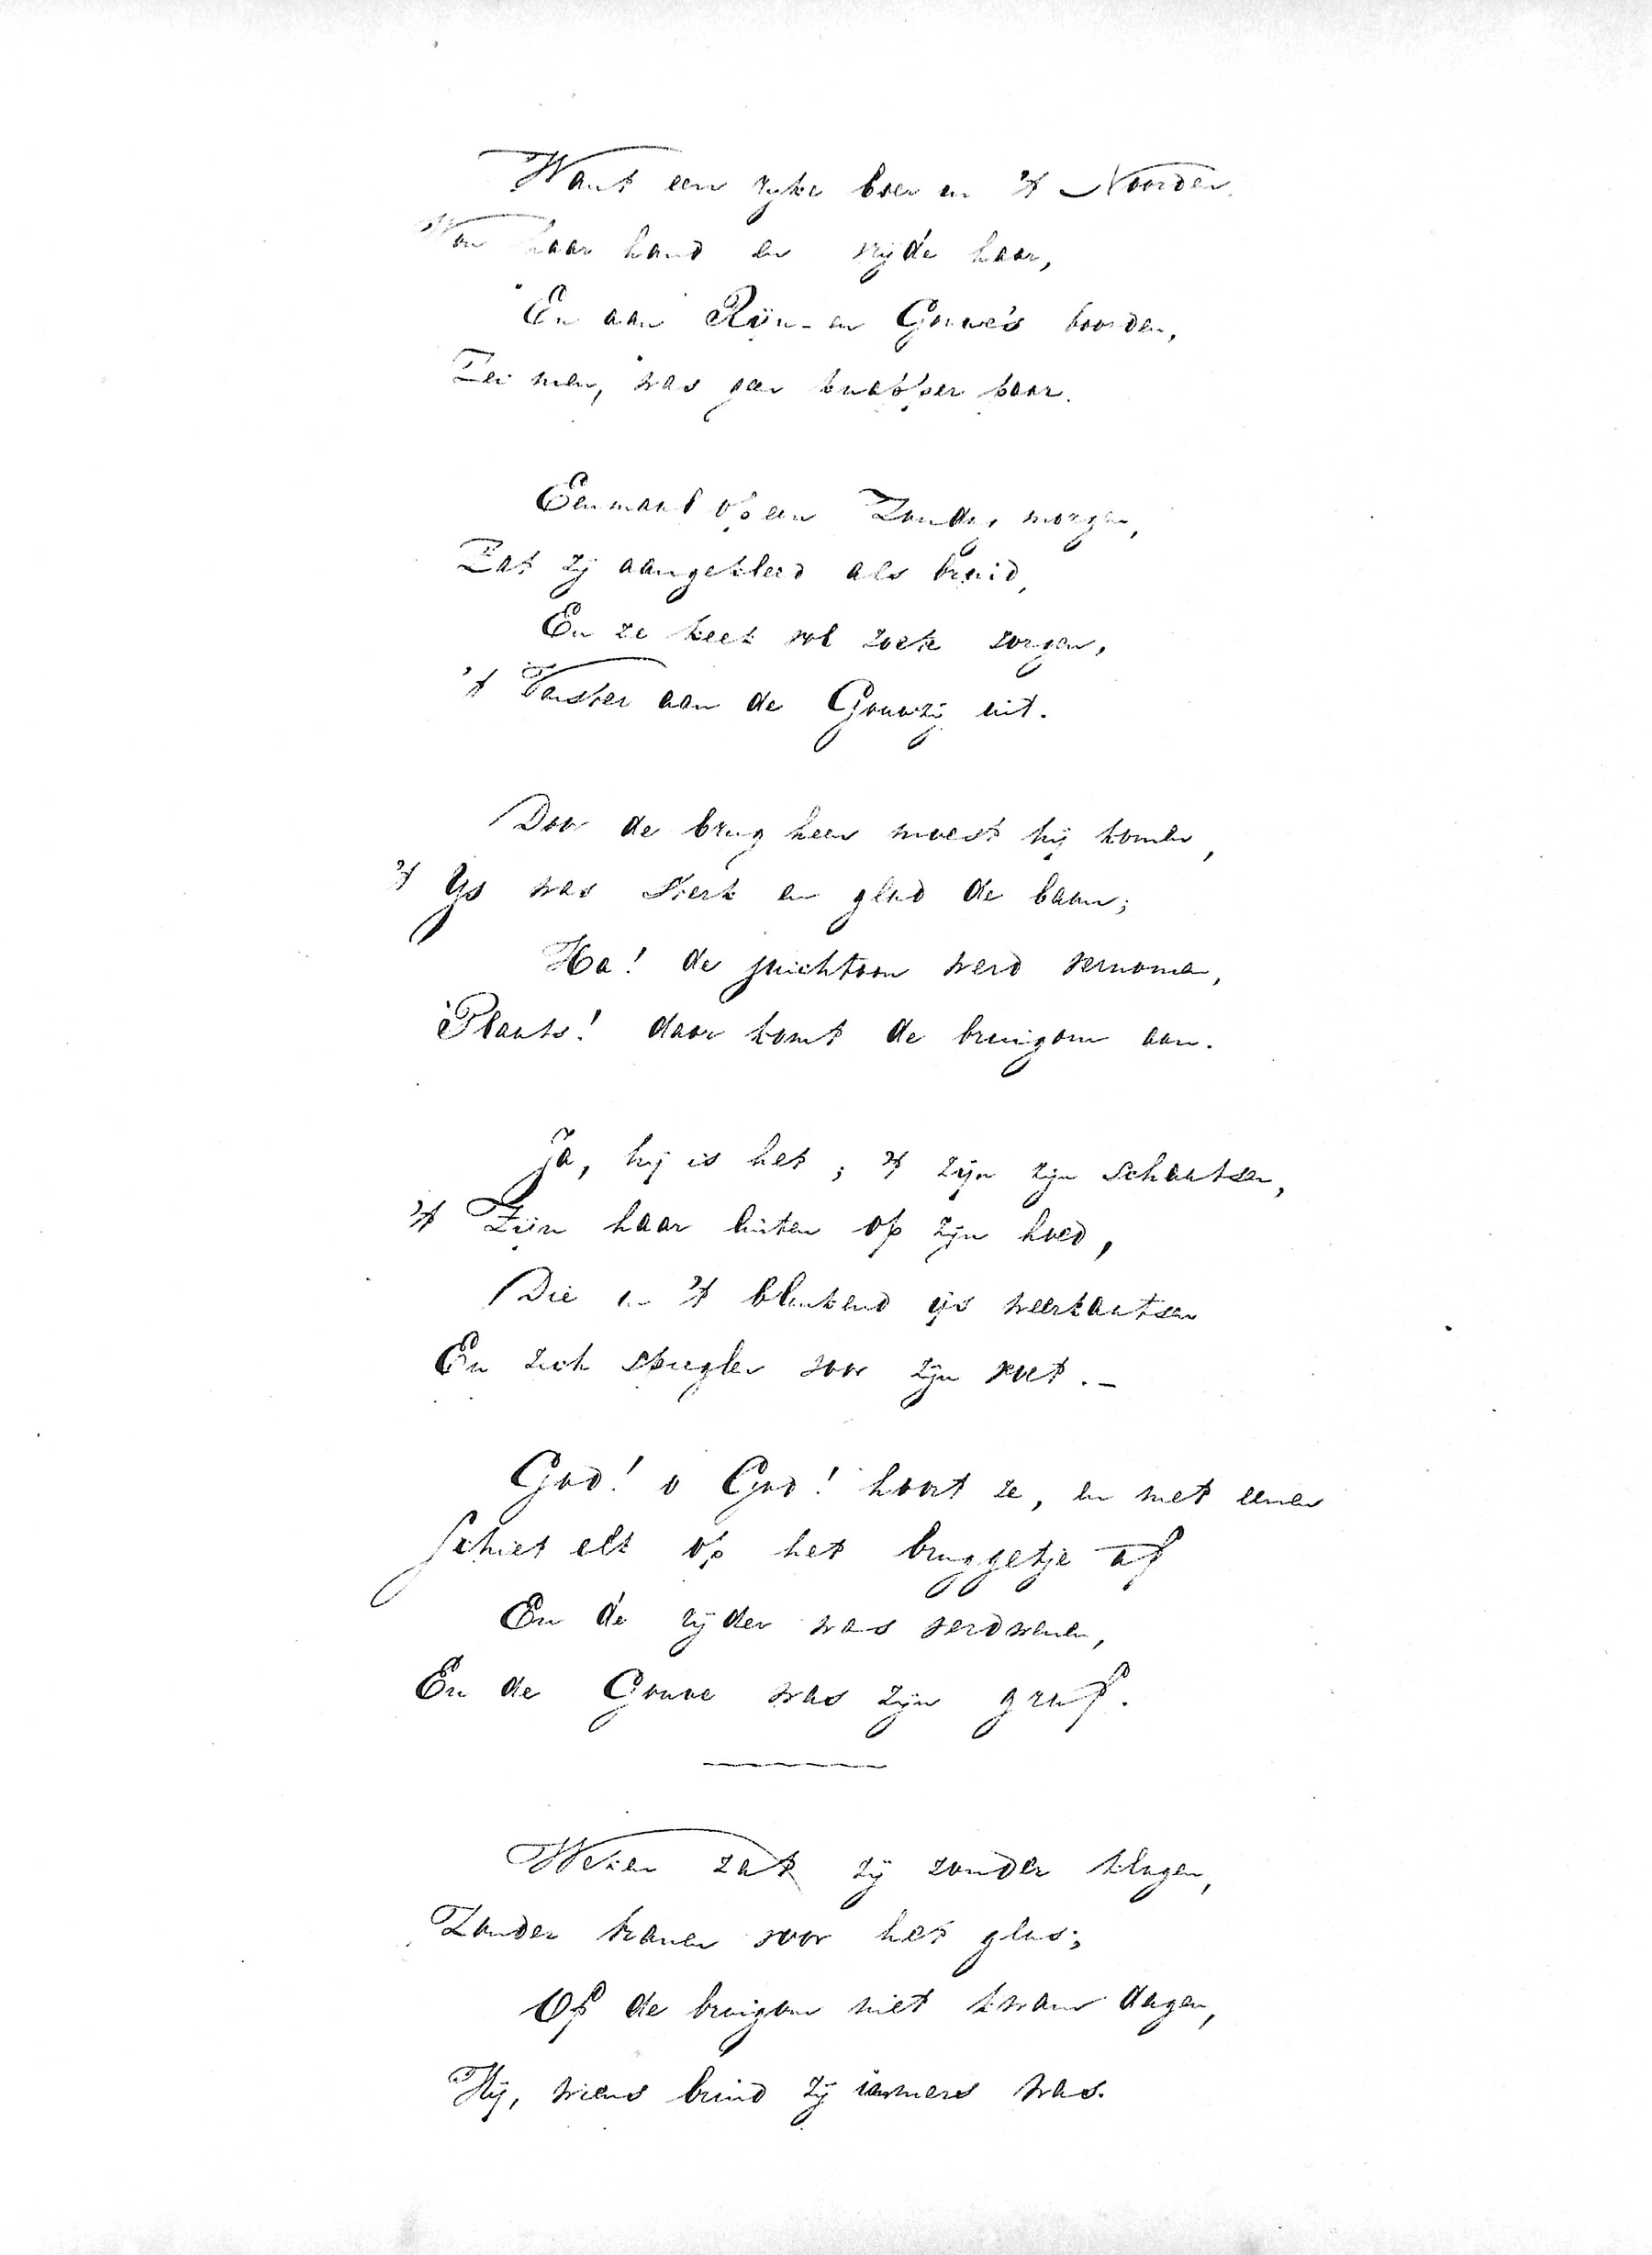 Want een rijke boer in 't Noorden
Won haar hand en vrijde haar,
En aan Rijn- en Gouwe's boorden,
Zei men, was geen knapper paar.
Eenmaal op een Zondag morgen,
Zat zij aangekleed als bruid,
En ze keek vol zoete zorgen,
't Venster aan de Gouwzij uit.
Door de brug heen moest hij komen,
't Ys was sterk en glad de baan;
Ha! de juichtoon werd vernomen,
Plaats! daar komt de bruigom aan.
Ja, hij is het; 't zijn zijn schaatsen,
't Zijn haar linten op zijn hoed,
Die in 't blinkend ijs weerkaatsen
En zich spieglen voor zijn voet. _
God! o God! hoort ze, en met eenen
Schiet elk op het bruggetje af
En de rijder was verdwenen,
En de Gouwe was zijn graf.
Weken zat zij zonder klagen,
Zonder tranen voor het glas;
Of de bruigom niet kwam dagen,
Hij, wiens bruid zij immers was.